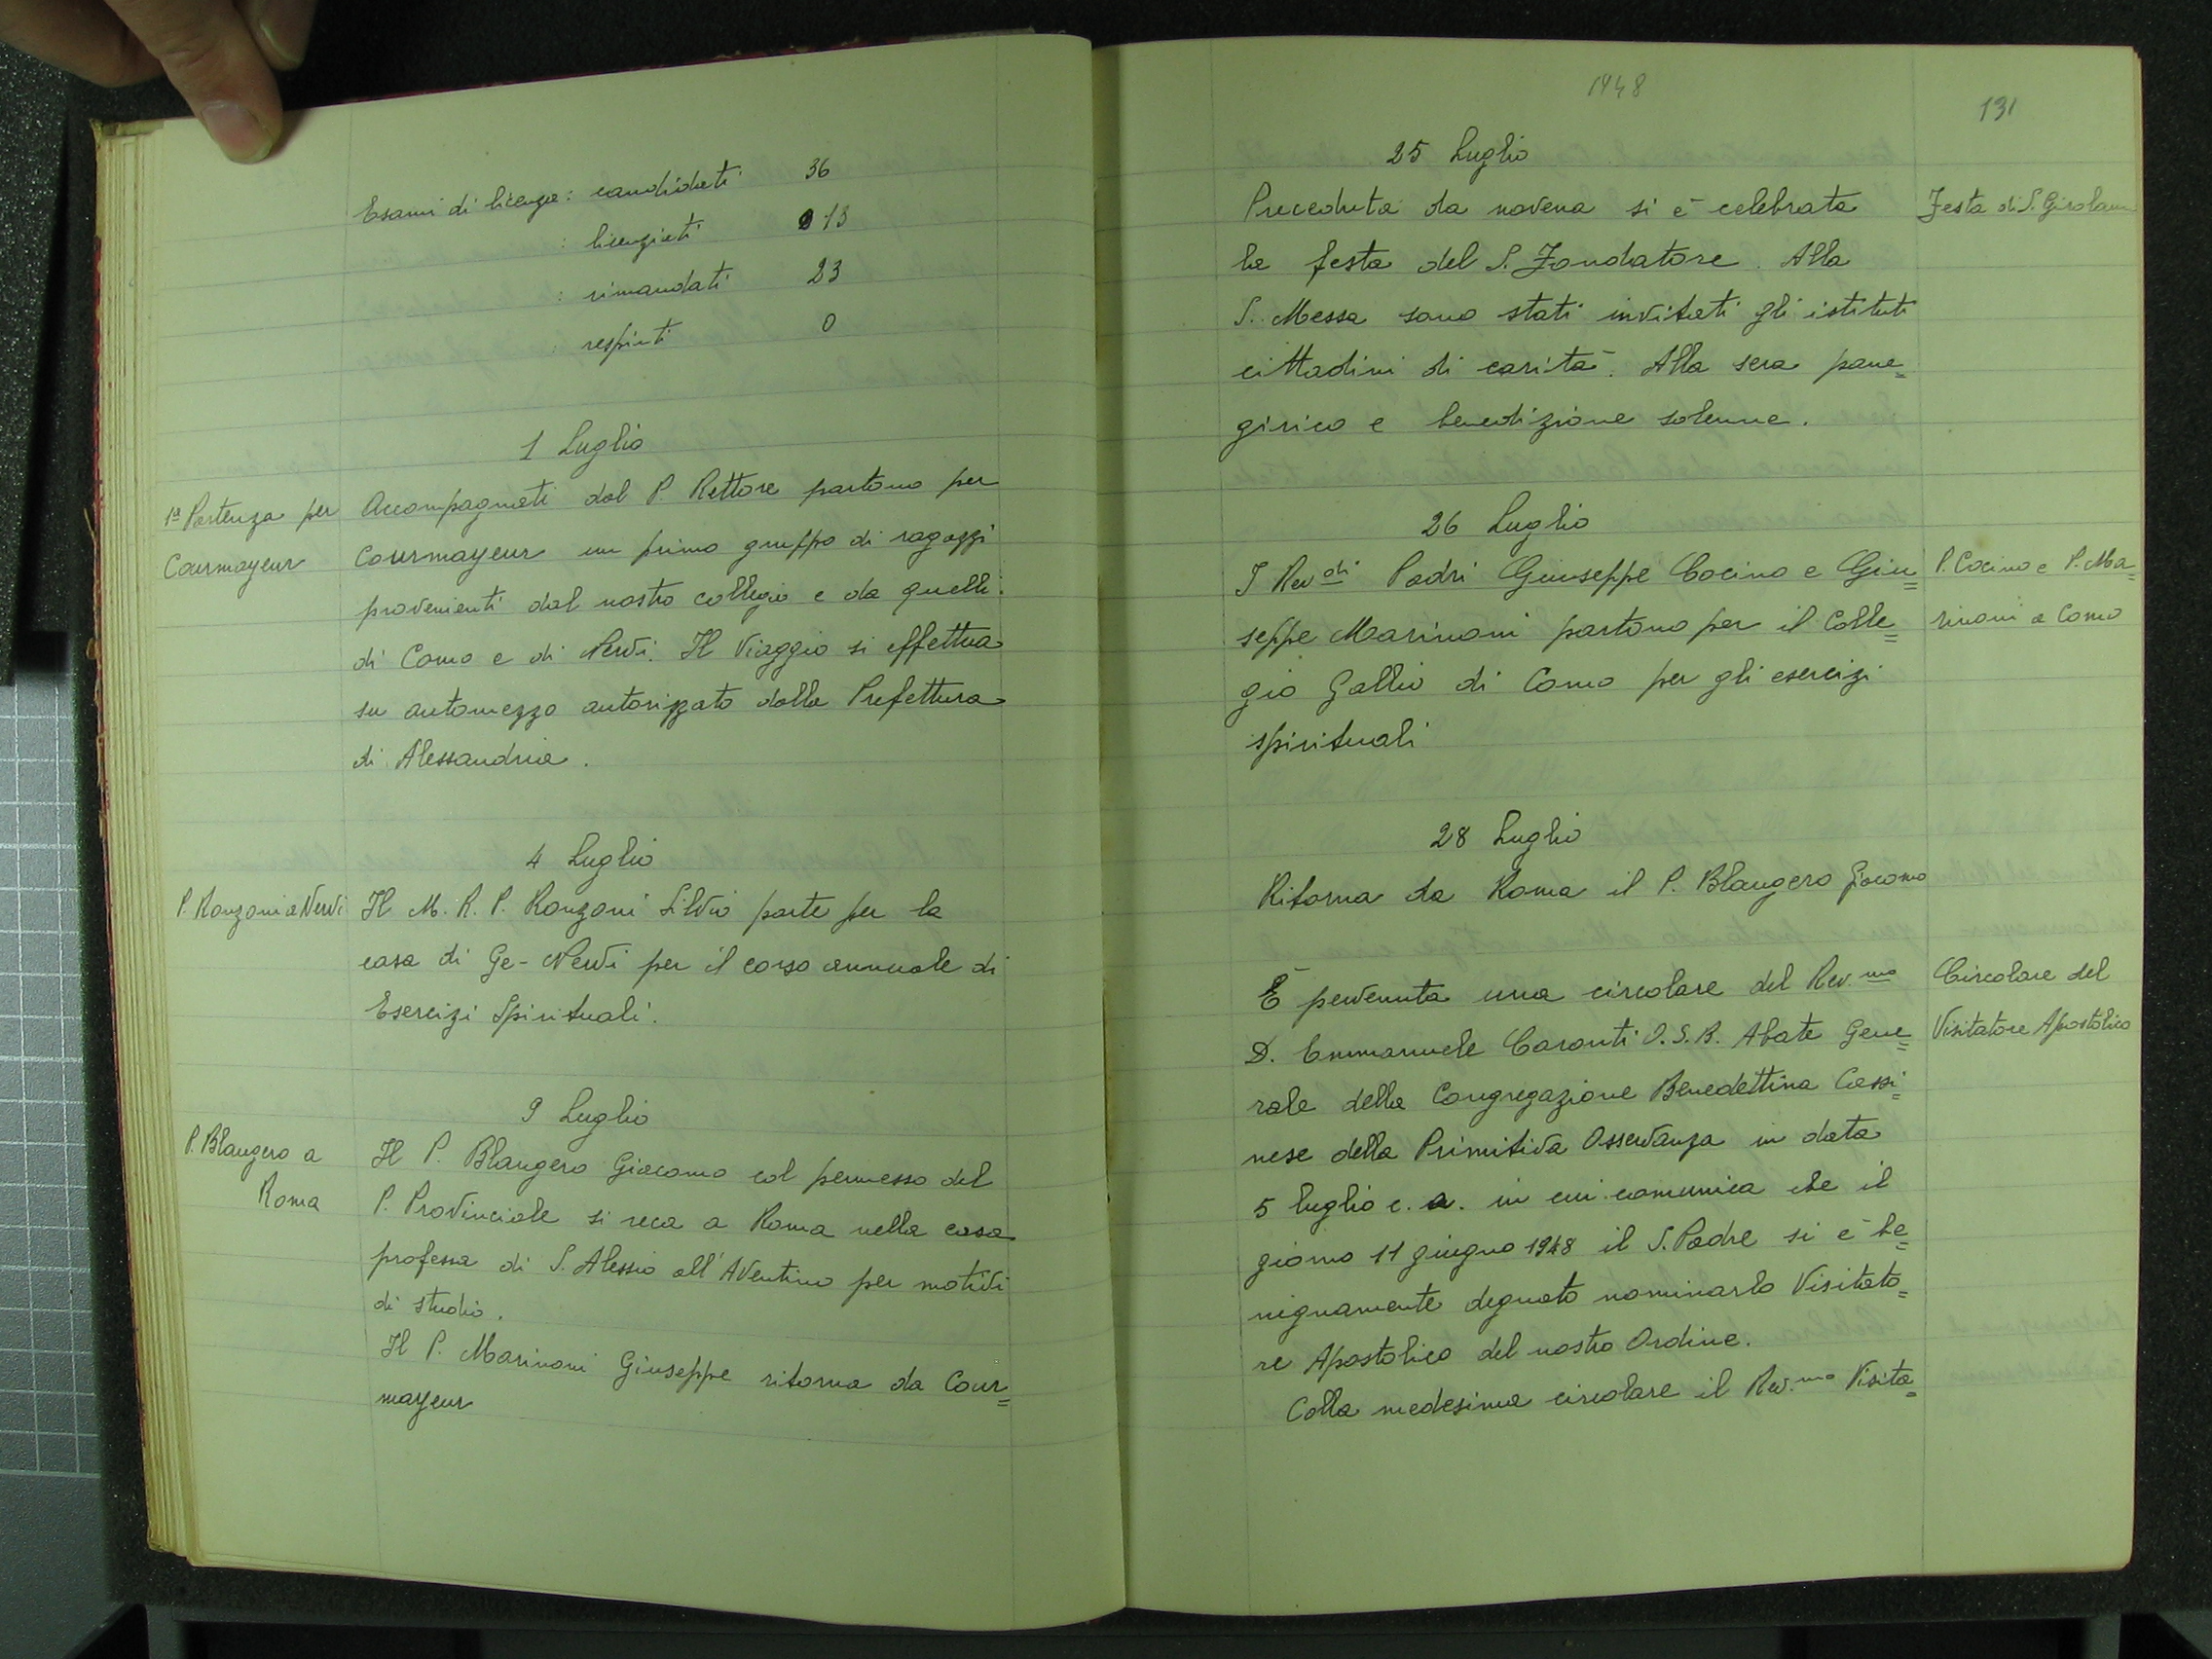 Esami di licenza: candidati 36
: licenziati 13
: rimandati 23
: respinti 0
1 Luglio
1ª Partenza per
Courmayeur
Accompagnati dal P. Rettore partono per
Courmayeur un primo gruppo di ragazzi
provenienti dal nostro collegio e da quelli
di Como e di Nervi. Il viaggio si effettua
su automezzo autorizzato dalla Prefettura
di Alessandria.
4 Luglio
P. Ronzoni a Nervi
Il M. R. P. Ronzoni Silvio parte per la
casa di Ge-Nervi per il corso annuale di
Esercizi Spirituali.
9 Luglio
P. Blangero a
Roma
Il P. Blangero Giacomo col permesso del
P. Provinciale si reca a Roma nella casa
professa di S. Alessio all'Aventino per motivi
di studio.
Il P. Marinoni Giuseppe ritorna da Cour=
mayeur
1948
131
25 Luglio
Preceduta da novena si è celebrata
la festa del S. Fondatore. Alla
S. Messa sono stati invitati gli istituti
cittadini di carità. Alla sera pane=
girico e benedizione solenne.
Festa di S. Girolamo
26 Luglio
I Rev.di Padri Giuseppe Cocino e Giu=
seppe Marinoni partono per il Colle=
gio Gallio di Como per gli esercizi
spirituali
P. Cocino e P. Ma=
rinoni a Como
28 Luglio
Ritorna da Roma il P. Blangero Giacomo
È pervenuta una circolare del Rev.mo
D. Emmanuele Caronti O.S.B. Abate Gene=
rale della Congregazione Benedettina Cassi=
nese della Primitiva Osservanza in data
5 luglio c. a. in cui comunica che il
giorno 11 giugno 1948 il S. Padre si è be=
nignamente degnato nominarlo Visitato=
re Apostolico del nostro Ordine.
Colla medesima circolare il Rev.mo Visita=
Circolare del
Visitatore Apostolico